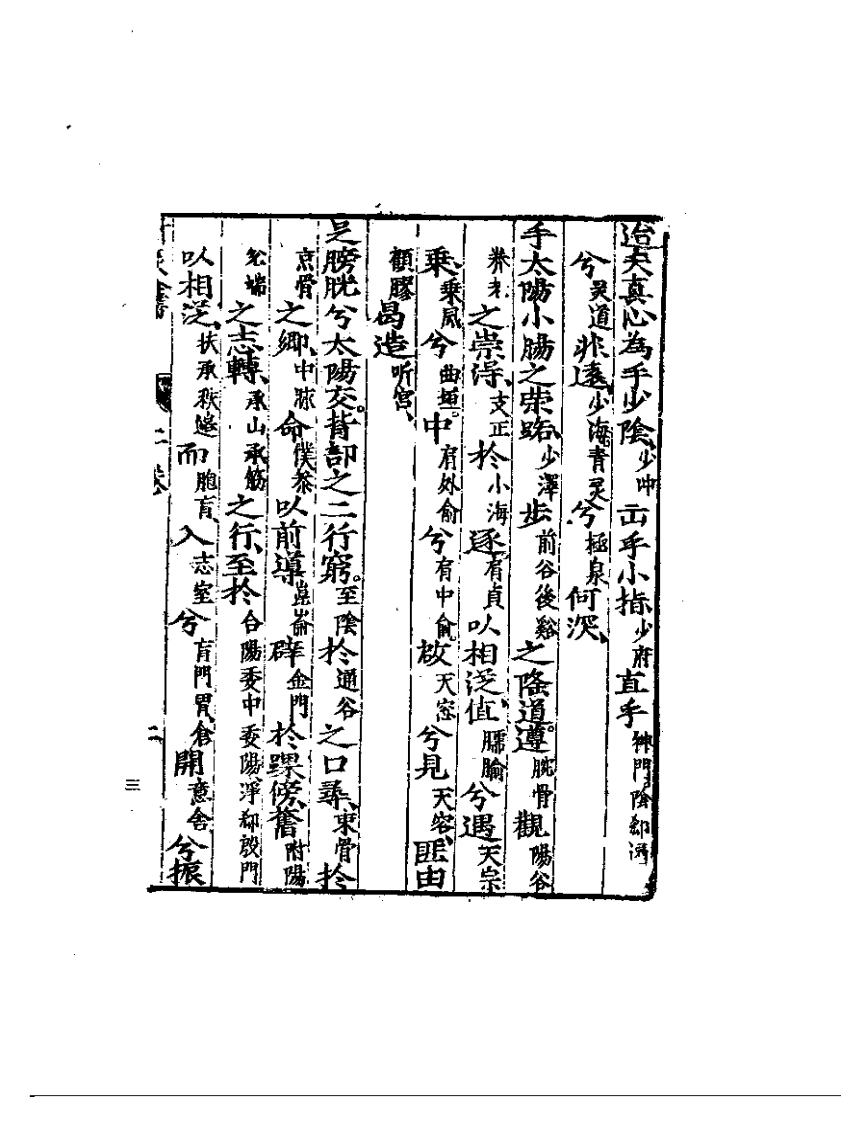 迨夫真心為手少陰、少冲出乎小指少府直乎神門陰郄通
兮灵道非遠、少海青灵兮極泉何深、
手太陽小腸之荣路、少澤步前谷後谿之隆道。遵腕骨觀陽谷
养老之崇淂、支正扵小海逐肩貞以相迳值、臑腧兮遇天宗
乗、乗風兮曲垣。中肩外俞兮肩中俞啟天窓兮見天容、匪由
顴膠曷造听宫、
足膀胱兮太陽交背部之二行窮。至陰扵通谷之口尋、束骨扵
京骨之鄉、申脉命僕参以前導崑崙辟金門扵踝傍、奮附陽
之志轉、承山承筋之行、至扵合陽委中委陽浮郄殷門
以相迳、扶承秩邉而胞肓入志室兮肓門胃倉開意舍兮振
二卷
二
三